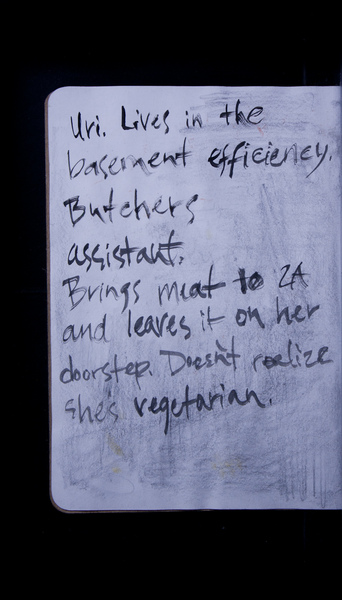 Uri. Lives in the
basement efficiency.
Butchers
assistant.
Brings meat to 2A
and leaves it on her
doorstep. Doesn't realize
she's vegetarian.